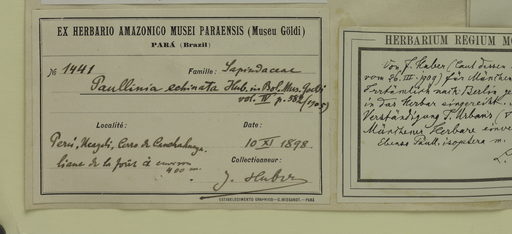 EX HERBARIO AMAZONICO MUSEI PARAENSIS (Museu Göldi)
PARÁ (Brazil)
№ 1441 Famille: Sapindaceae
Paullinia echinata Hub. in Bol. Mus. Goeldi
vol. IV p. 582 (1905)
Localité: Date:
Perú, Ucayali, Cerro de Canchahuaya. 10 XI 1898
liane de la forêt à environ
400 m.
Collectionneur:
J. Huber
ESTABELECIMENTO GRAPHICO - C. WIEGANDT. - PARÁ
HERBARIUM REGIUM MO
Von J. Huber (laut dessen
vom 26. III. 1909) für München
Irrtümlich nach Berlin
in das Herbar eingereiht.
Verständigung J. Urbans
Münchener Herbare
Ebenso Paull. isoptera m.